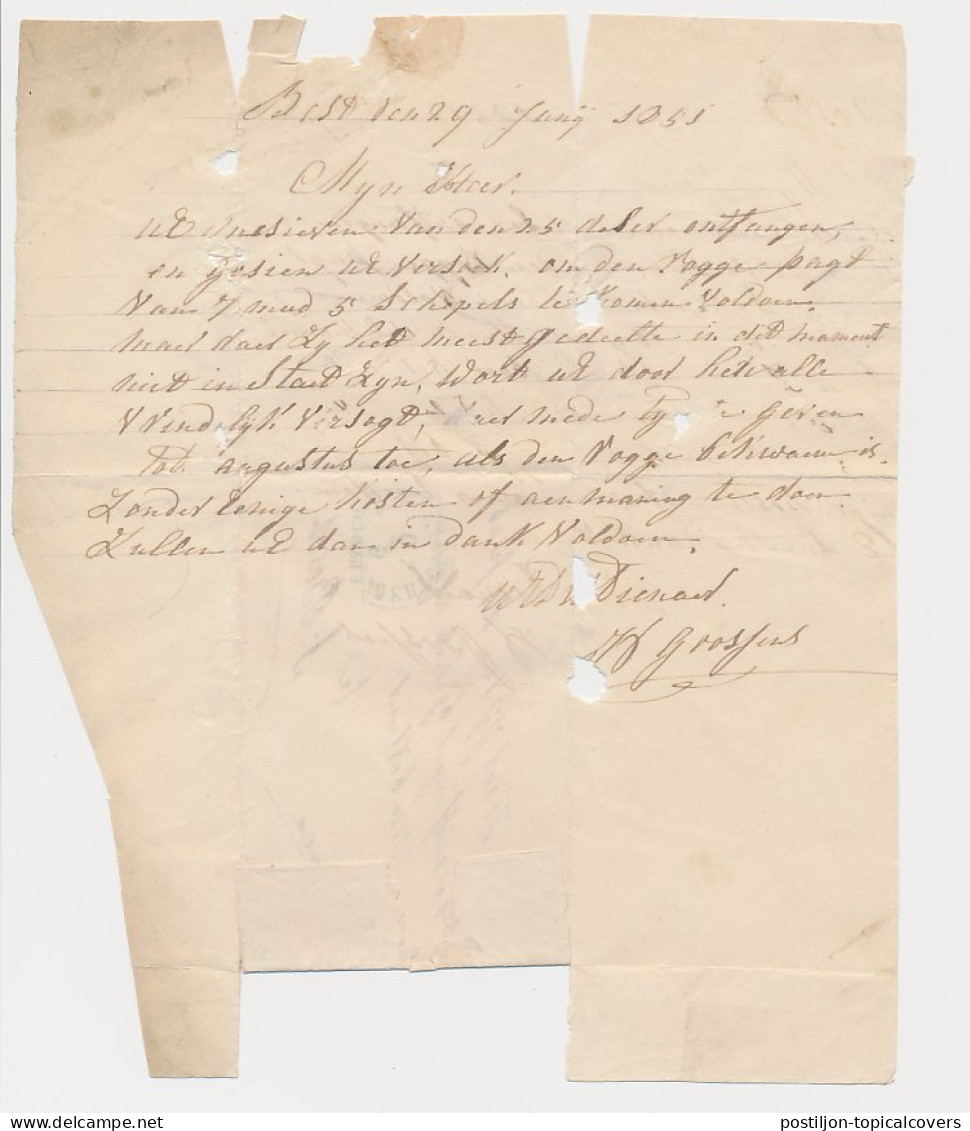 Best den 29 Junij 1851
Myn Heer.
UE Missieven van den 25 deser ontfangen,
en gesien UE versoek. om den Rogge pagt
van 7 mud 5 Schepels te komen voldoen.
maer daer zy het meest gedeelte in dit moment
niet in Staet zyn, wort UE door hen alle
vrindelijk versogt, daer mede tyd te geven
tot augustus toe, als den Rogge bekwaem is.
Zonder eenige kosten of aenmaning te doen
Zullen UE dan in dank voldoen.
UEDW Dienaer.
Goossens
postiljon-topicalcovers